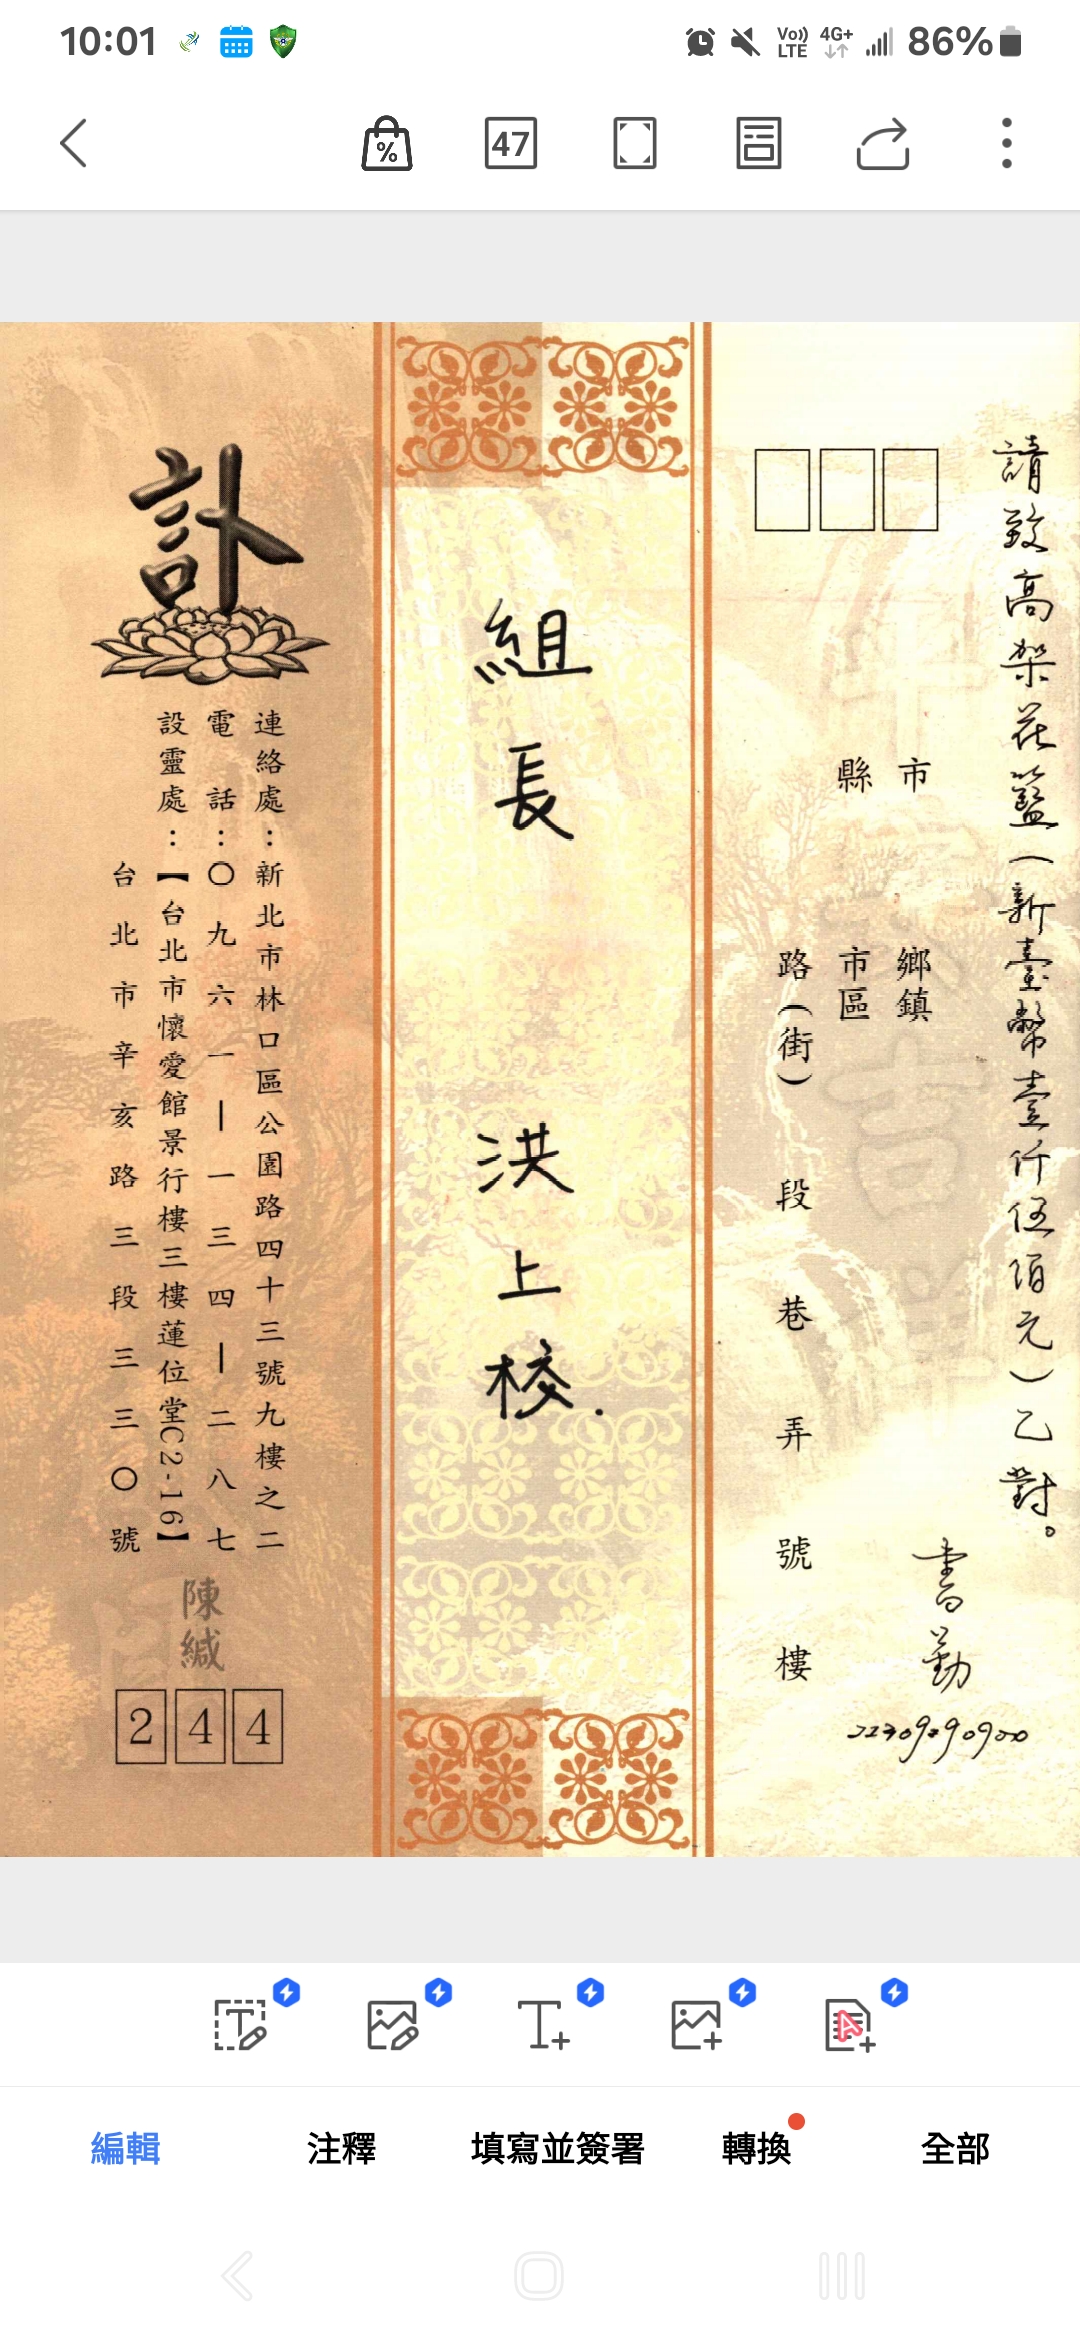 10:01
Vo)) LTE
4G+
86%
%
47
請致高架花籃(新臺幣壹仟伍佰元)乙對。
書勤
市
縣
鄉鎮
市區
路(街)
段
巷
弄
號
樓
組長
洪上校.
訃
連絡處:新北市林口區公園路四十三號九樓之二
電話:〇九六一-一三四-二八七
設靈處:【台北市懷愛館景行樓三樓蓮位堂C2-16】
台北市辛亥路三段三三〇號
陳緘
244
編輯
注釋
填寫並簽署
轉換
全部